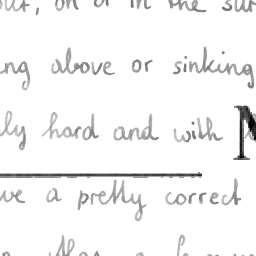 out, on or in the sur
ng above or sinking
ly hard and with N
ve a pretty correct